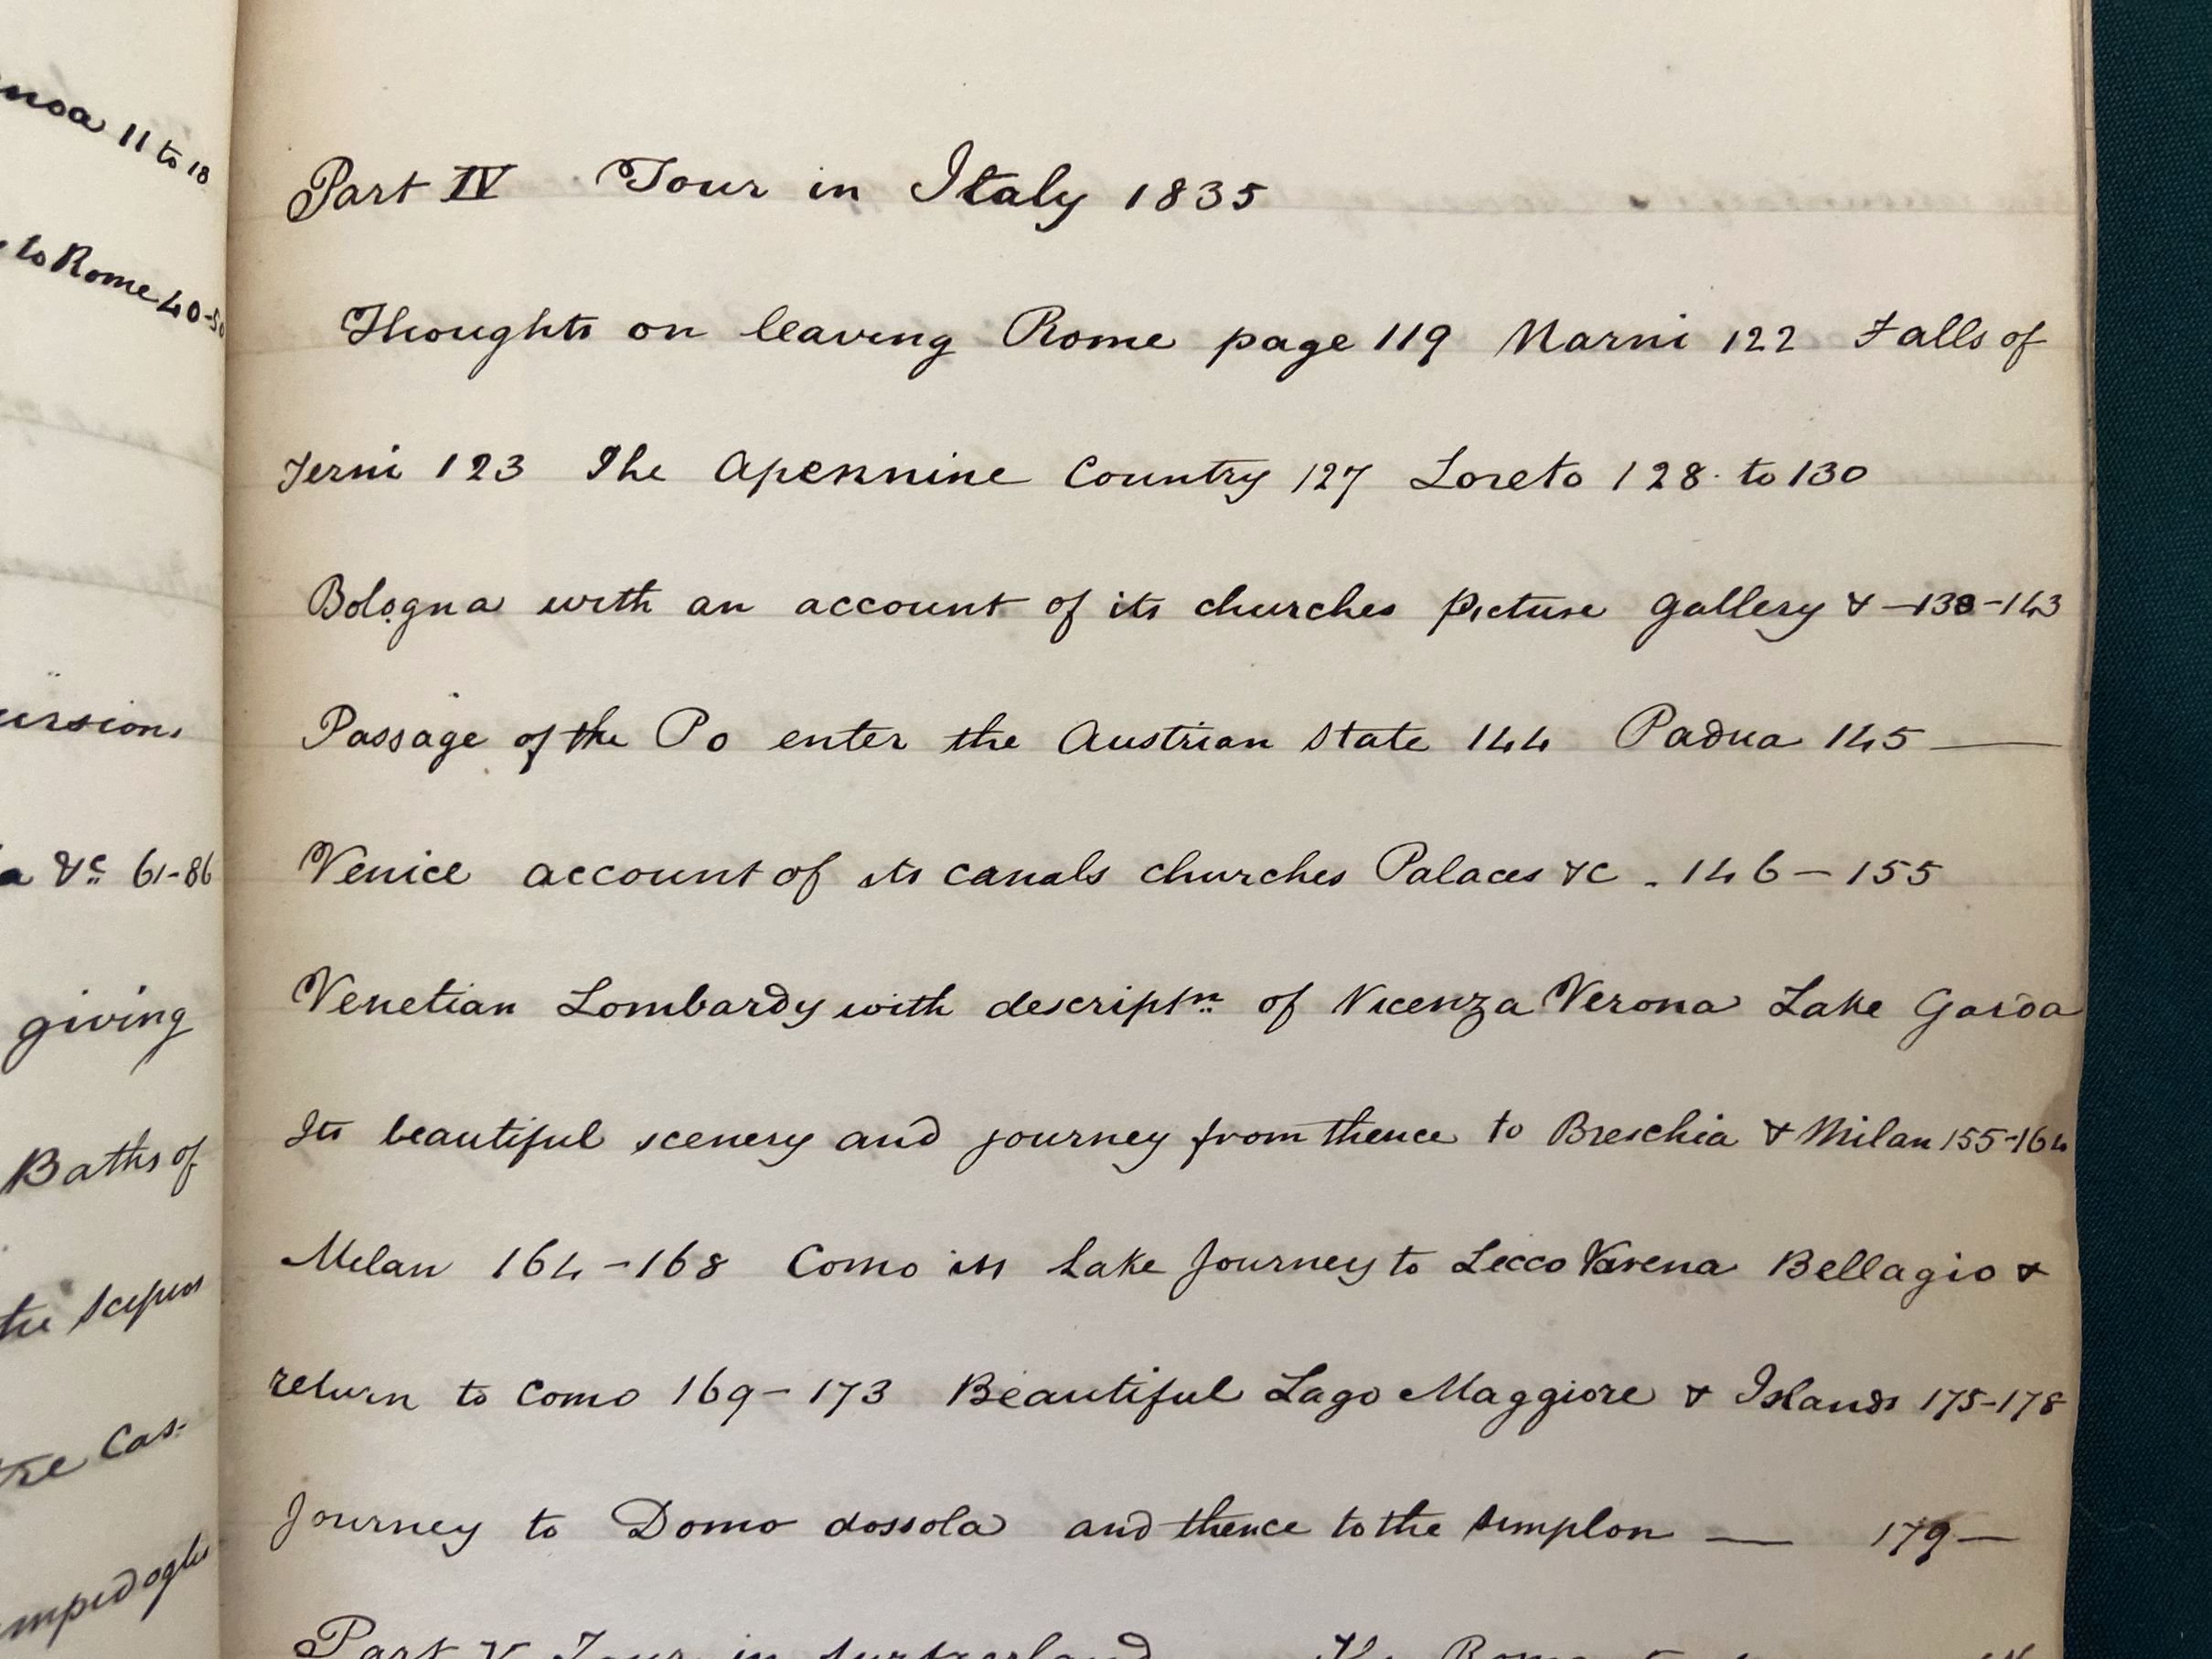 nsoa 11 to 18
to Rome 40-50
ursions
a &c 61-86
giving
Baths of
the
Cas-
Part IV Tour in Italy 1835
Thoughts on leaving Rome page 119 Narni 122 Falls of
Terni 123 The Apennine Country 127 Loreto 128 to 130
Bologna with an account of its churches Picture gallery & - 138-143
Passage of the Po enter the Austrian State 144 Padua 145 —
Venice account of its canals churches Palaces &c - 146 - 155
Venetian Lombardy with descriptn of Vicenza Verona Lake Garda
Its beautiful scenery and journey from thence to Breschia & Milan 155-164
Milan 164-168 Como its Lake Journey to Lecco Varena Bellagio &
return to Como 169-173 Beautiful Lago Maggiore & Islands 175-178
Journey to Domo dossola and thence to the Simplon — 179 —
Part V Tour in Switzerland